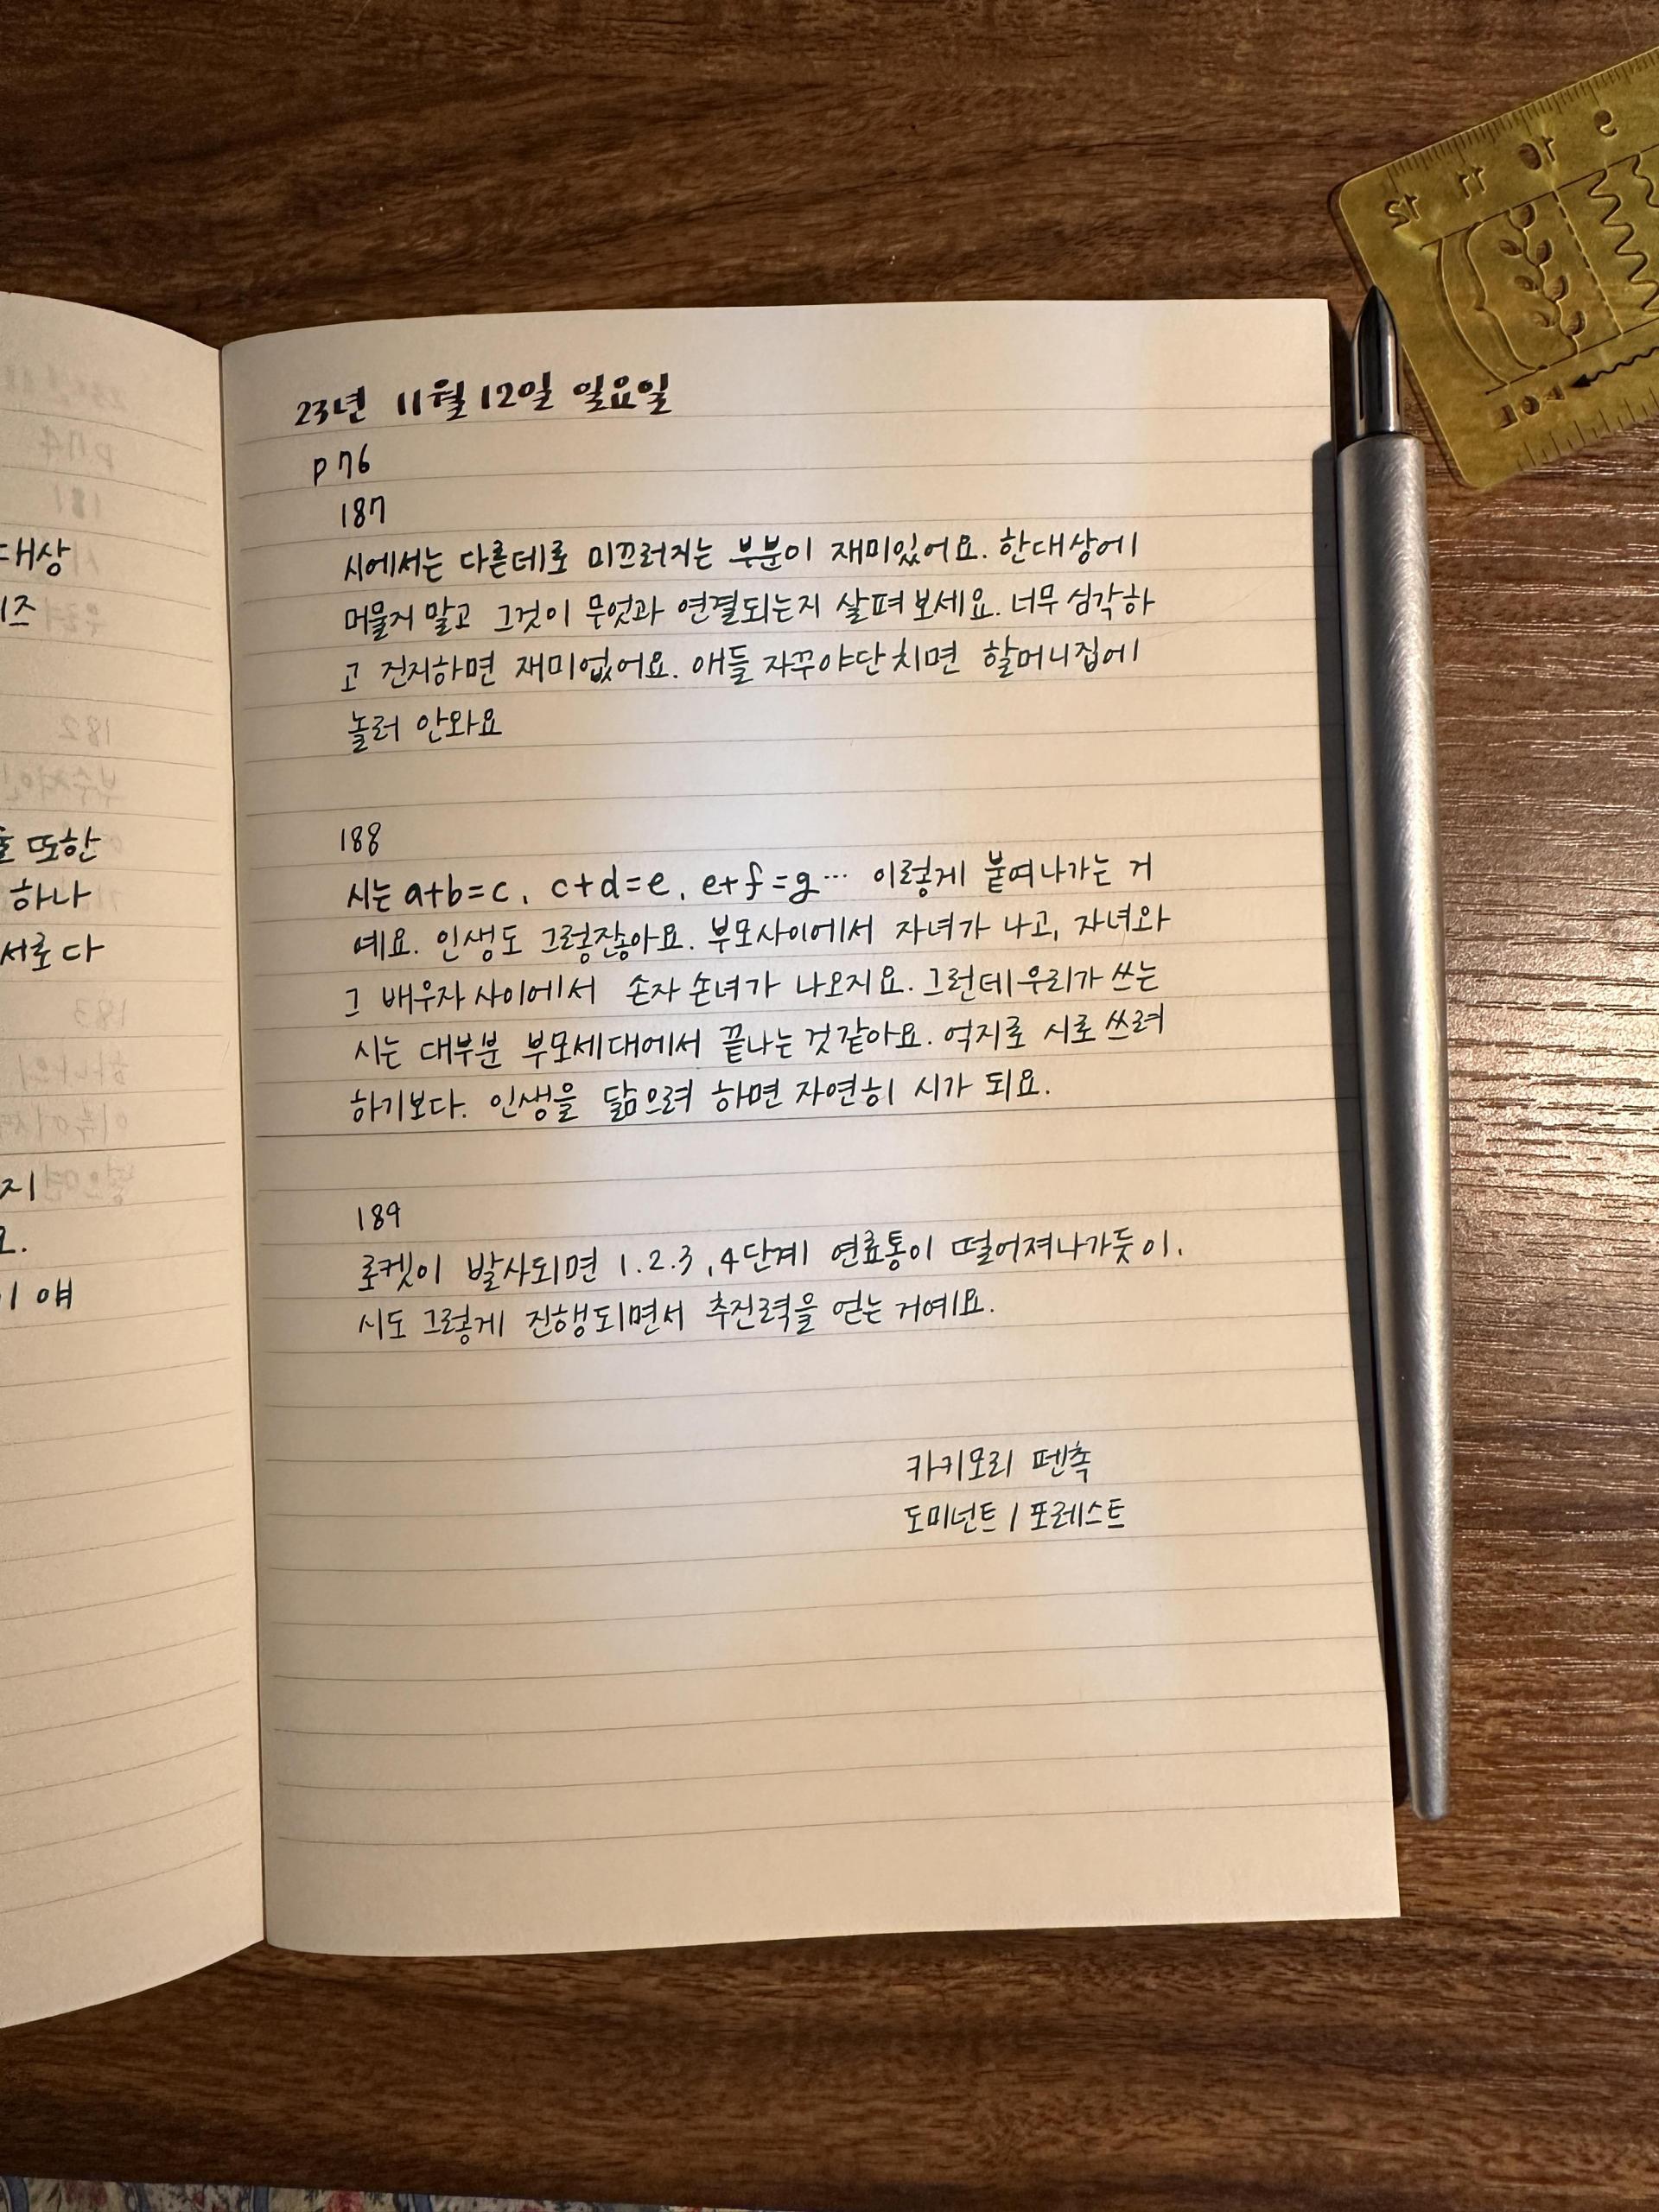 대상
즈
또한
하나
서로 다
지
요.
이 얘
23년 11월 12일 일요일
p 76
187
시에서는 다른데로 미끄러지는 부분이 재미있어요. 한대상에
머물지 말고 그것이 무엇과 연결되는지 살펴 보세요. 너무 심각하
고 진지하면 재미없어요. 애들 자꾸야단치면 할머니집에
놀러 안와요
188
시는 a+b=c, c+d=e, e+f=g... 이렇게 붙여나가는 거
예요. 인생도 그렇잖아요. 부모사이에서 자녀가 나고, 자녀와
그 배우자 사이에서 손자 손녀가 나오지요. 그런데 우리가 쓰는
시는 대부분 부모세대에서 끝나는 것 같아요. 억지로 시로 쓰려
하기보다. 인생을 닮으려 하면 자연히 시가 되요.
189
로켓이 발사되면 1.2.3,4단계 연료통이 떨어져나가듯이.
시도 그렇게 진행되면서 추진력을 얻는 거예요.
카키모리 펜촉
도미넌트 / 포레스트
9
10
11
12